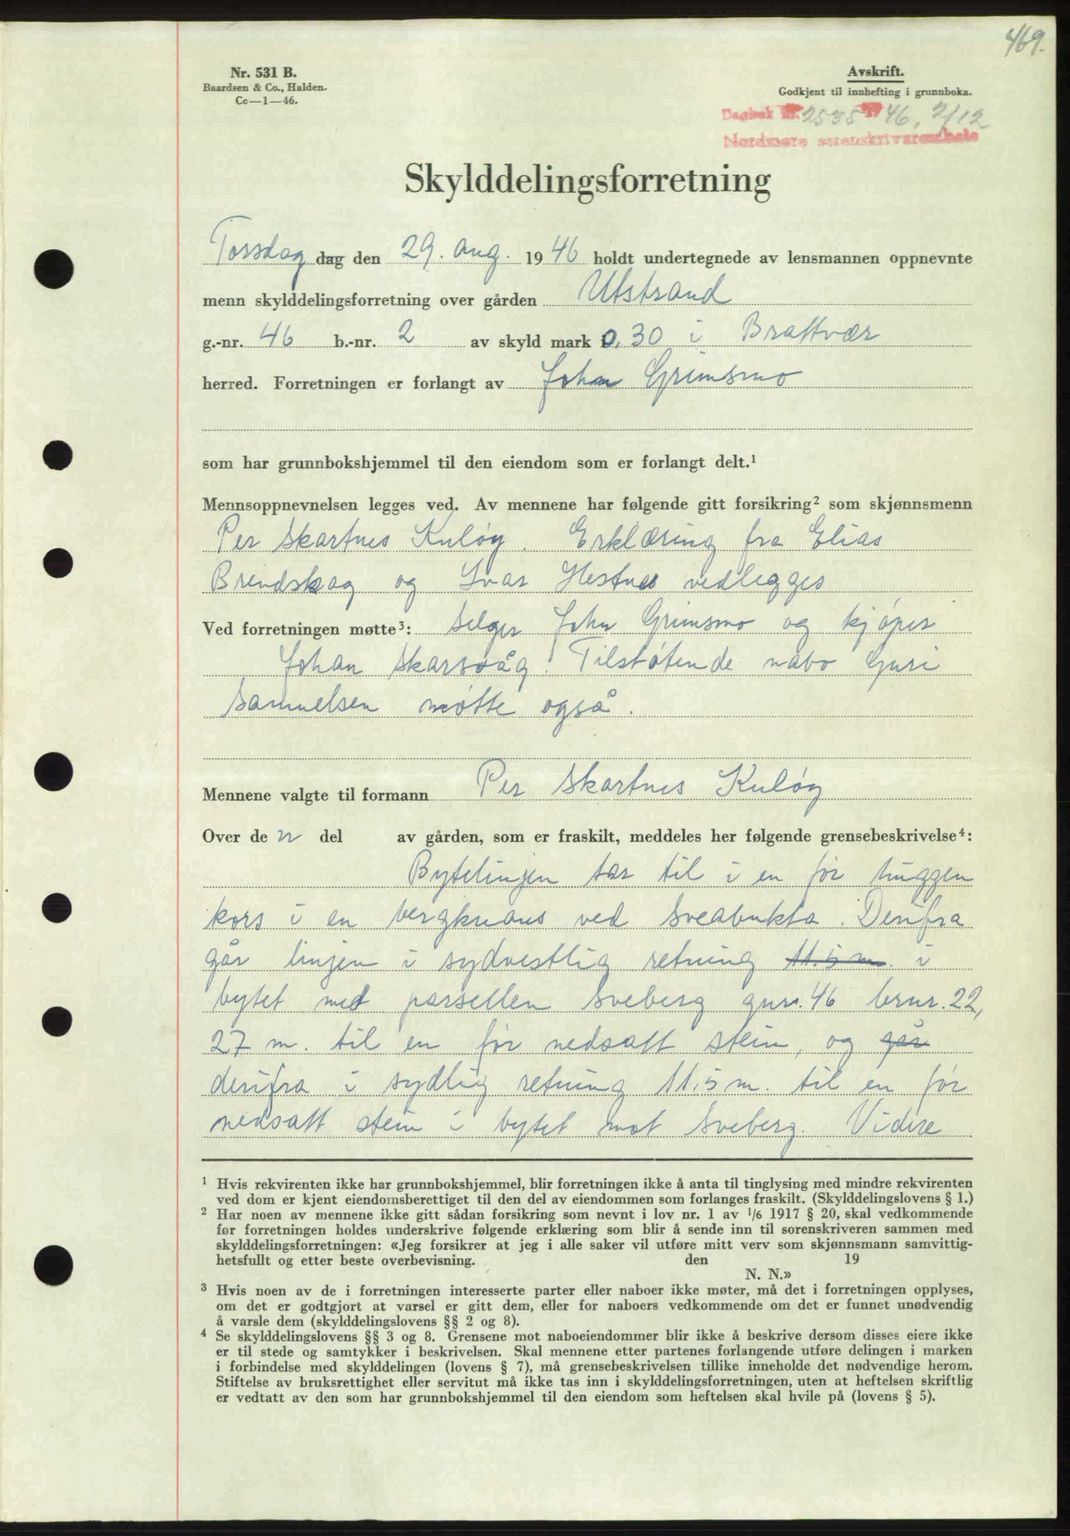 469.
Nr. 531 B.
Baardsen & Co., Halden.
Cc—1—46.
Avskrift.
Godkjent til innhefting i grunnboka.
Dagbok nr. 2535 19 46, 2/12
Nordmøre sorenskriverembete
Skylddelingsforretning
Torsdag dag den 29. aug. 19 46 holdt undertegnede av lensmannen oppnevnte
menn skylddelingsforretning over gården Utstrand
g.-nr. 46 b.-nr. 2 av skyld mark 0,30 i Brattvær
herred. Forretningen er forlangt av Johan Grimsmo
som har grunnbokshjemmel til den eiendom som er forlangt delt.¹
Mennsoppnevnelsen legges ved. Av mennene har følgende gitt forsikring² som skjønnsmenn
Per Skartnes Kuløy. Erklæring fra Elias
Brendskag og Ivar Hestnes vedlegges
Ved forretningen møtte³: Selger John Grimsmo og kjøper
Johan Skarsvåg. Tilstøtende nabo Guri
Samuelsen møtte også.
Mennene valgte til formann Per Skartnes Kuløy
Over de n del av gården, som er fraskilt, meddeles her følgende grensebeskrivelse⁴:
Bytelinjen tar til i en før huggen
kors i en bergknaus ved Sveabukta. Derifra
går linjen i sydvestlig retning 11.5 m. i
bytet med parsellen Sveberg gnr. 46 brnr. 22,
27 m. til en før nedsatt stein, og går
derifra i sydlig retning 11,5 m. til en før
nedsatt stein i bytet mot Sveberg. Videre
¹ Hvis rekvirenten ikke har grunnbokshjemmel, blir forretningen ikke å anta til tinglysing med mindre rekvirenten
ved dom er kjent eiendomsberettiget til den del av eiendommen som forlanges fraskilt. (Skylddelingslovens § 1.)
² Har noen av mennene ikke gitt sådan forsikring som nevnt i lov nr. 1 av 1/6 1917 § 20, skal vedkommende
før forretningen holdes underskrive følgende erklæring som blir å sende inn til sorenskriveren sammen med
skylddelingsforretningen: «Jeg forsikrer at jeg i alle saker vil utføre mitt verv som skjønnsmann samvittig-
hetsfullt og etter beste overbevisning. den 19
N. N.»
³ Hvis noen av de i forretningen interesserte parter eller naboer ikke møter, må det i forretningen opplyses,
om det er godtgjort at varsel er gitt dem, eller for naboers vedkommende om det er funnet unødvendig
å varsle dem (skylddelingslovens §§ 2 og 8).
⁴ Se skylddelingslovens §§ 3 og 8. Grensene mot naboeiendommer blir ikke å beskrive dersom disses eiere ikke
er til stede og samtykker i beskrivelsen. Skal mennene etter partenes forlangende utføre delingen i marken
i forbindelse med skylddelingen (lovens § 7), må grensebeskrivelsen tillike inneholde det nødvendige herom.
Stiftelse av bruksrettighet eller servitut må ikke tas inn i skylddelingsforretningen, uten at heftelsen skriftlig
er vedtatt av den som har grunnbokshjemmel til den eiendom som heftelsen skal hvile på (lovens § 5).